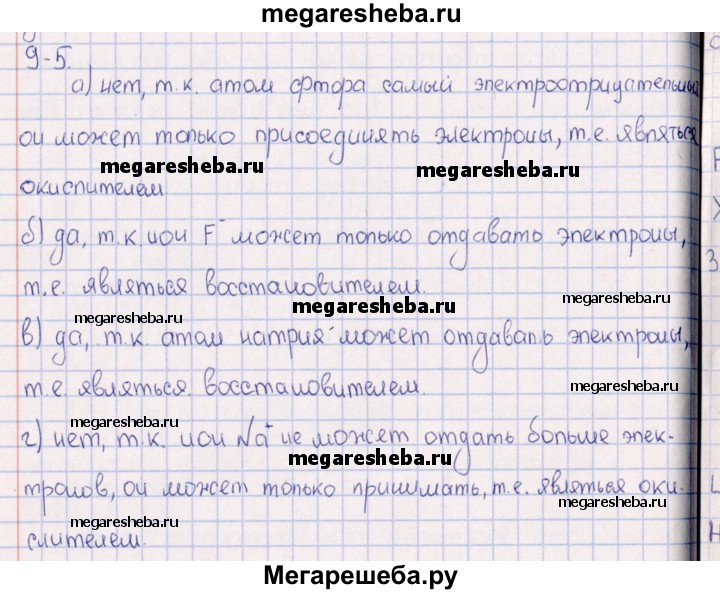 megaresheba.ru
9-5.
а) нет, т.к. атом фтора самый электроотрицательный
он может только присоединять электроны, т.е. являться
megaresheba.ru megaresheba.ru
окислителем
б) да, т.к. ион F⁻ может только отдавать электроны,
т.е. являться восстановителем.
megaresheba.ru megaresheba.ru
в) да, т.к. атом натрия может отдавать электроны,
т.е. являться восстановителем.
megaresheba.ru
megaresheba.ru
г) нет, т.к. ион Na⁺ не может отдать больше элек-
megaresheba.ru
тронов, он может только принимать, т.е. являться оки-
megaresheba.ru megaresheba.ru
слителем.
Мегарешеба.ру